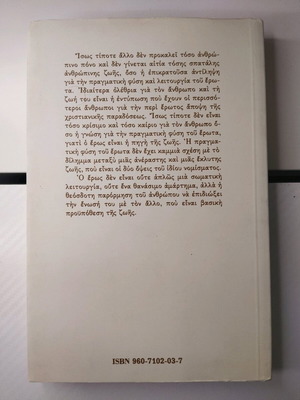 Ἴσως τίποτε ἄλλο δὲν προκαλεῖ τόσο ἀνθρώ-
πινο πόνο καὶ δὲν γίνεται αἰτία τόσης σπατάλης
ἀνθρώπινης ζωῆς, ὅσο ἡ ἐπικρατοῦσα ἀντίληψη
γιὰ τὴν πραγματικὴ φύση καὶ λειτουργία τοῦ ἔρω-
τα. Ἰδιαίτερα ὀλέθρια γιὰ τὸν ἄνθρωπο καὶ τὴ
ζωή του εἶναι ἡ ἐντύπωση ποὺ ἔχουν οἱ περισσό-
τεροι ἄνθρωποι γιὰ τὴν περὶ ἔρωτος ἄποψη τῆς
χριστιανικῆς παραδόσεως. Ἴσως τίποτε δὲν εἶναι
τόσο κρίσιμο καὶ τόσο καίριο γιὰ τὸν ἄνθρωπο ὅ-
σο ἡ γνώση γιὰ τὴν πραγματικὴ φύση τοῦ ἔρωτα,
γιατὶ ὁ ἔρως εἶναι ἡ πηγὴ τῆς ζωῆς. Ἡ πραγμα-
τικὴ φύση τοῦ ἔρωτα δὲν ἔχει καμμιὰ σχέση μὲ τὸ
δίλημμα μεταξὺ μιᾶς ἀνέραστης καὶ μιᾶς ἔκλυτης
ζωῆς, ποὺ εἶναι οἱ δύο ὄψεις τοῦ ἰδίου νομίσματος.
Ὁ ἔρως δὲν εἶναι οὔτε ἁπλῶς μιὰ σωματικὴ
λειτουργία, οὔτε ἕνα θανάσιμο ἁμάρτημα, ἀλλὰ ἡ
θεόσδοτη παρόρμηση τοῦ ἀνθρώπου νὰ ἐπιδιώξει
τὴν ἕνωσή του μὲ τὸν ἄλλο, ποὺ εἶναι βασικὴ
προϋπόθεση τῆς ζωῆς.
ISBN 960-7102-03-7